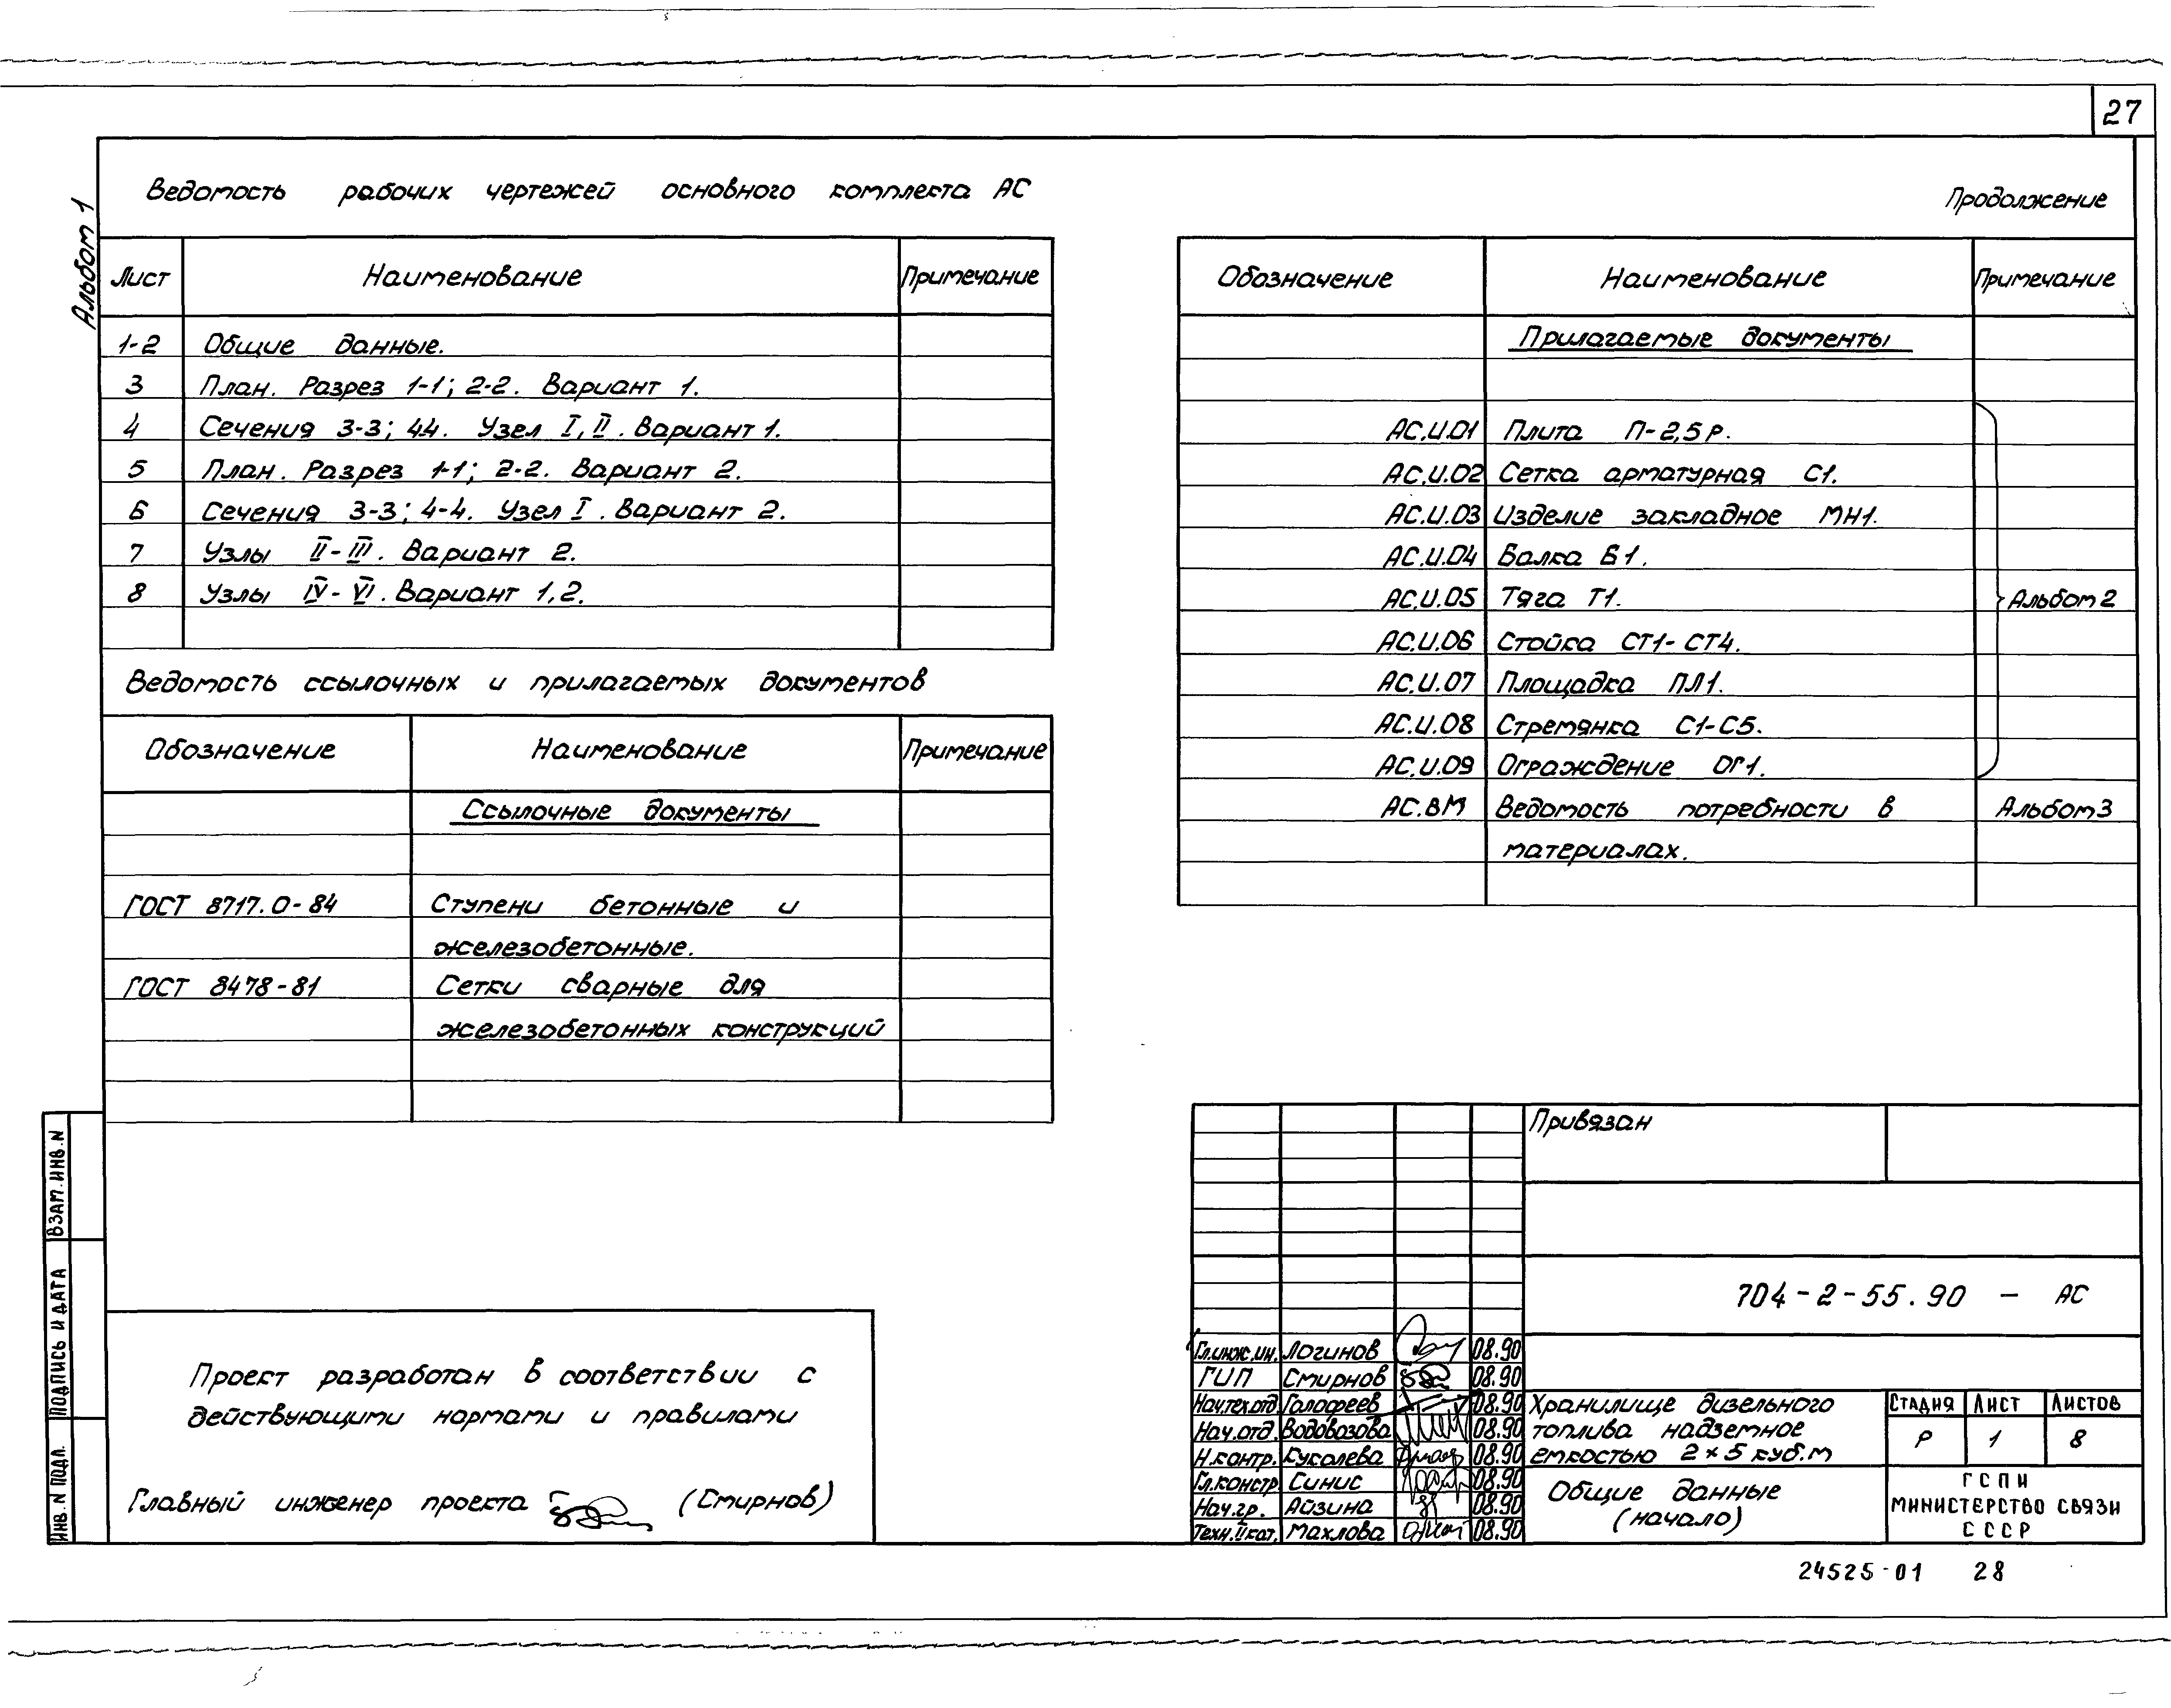 27
Альбом 1
Ведомость рабочих чертежей основного комплекта АС
Лист Наименование Примечание
1-2 Общие данные.
3 План. Разрез 1-1; 2-2. Вариант 1.
4 Сечения 3-3; 44. Узел I, II. Вариант 1.
5 План. Разрез 1-1; 2-2. Вариант 2.
6 Сечения 3-3; 4-4. Узел I. Вариант 2.
7 Узлы II-III. Вариант 2.
8 Узлы IV-VI. Вариант 1,2.
Ведомость ссылочных и прилагаемых документов
Обозначение Наименование Примечание
Ссылочные документы
ГОСТ 8717.0-84 Ступени бетонные и
железобетонные.
ГОСТ 8478-81 Сетки сварные для
железобетонных конструкций
Продолжение
Обозначение Наименование Примечание
Прилагаемые документы
АС.И.01 Плита П-2,5р.
АС.И.02 Сетка арматурная С1.
АС.И.03 Изделие закладное МН1.
АС.И.04 Балка Б1.
АС.И.05 Тяга Т1. Альбом 2
АС.И.06 Стойка СТ1-СТ4.
АС.И.07 Площадка ПЛ1.
АС.И.08 Стремянка С1-С5.
АС.И.09 Ограждение ОГ1.
АС.ВМ Ведомость потребности в Альбом 3
материалах.
ВЗАМ.ИНВ.N
ПОДПИСЬ И ДАТА
ИНВ.N ПОДЛ.
Проект разработан в соответствии с
действующими нормами и правилами
Главный инженер проекта (Смирнов)
Привязан
704-2-55.90 - АС
Гл.инж.ин. Логинов 08.90
ГИП Смирнов 08.90
Нач.тех.отд. Голофеев 08.90
Нач.отд. Водовозова 08.90
Н.контр. Кукалева 08.90
Гл.констр. Синис 08.90
Нач.гр. Айзина 08.90
Техн.II кат. Махлова 08.90
Хранилище дизельного
топлива надземное
емкостью 2×5 куб.м
СТАДИЯ ЛИСТ ЛИСТОВ
Р 1 8
Общие данные
(начало)
ГСПИ
МИНИСТЕРСТВО СВЯЗИ
СССР
24525-01 28